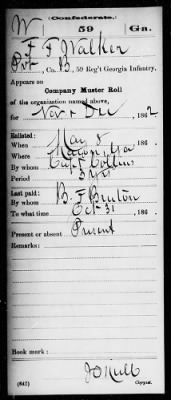 W (Confederate.) 59 Ga.
F F Walker
Pvt, Co. B, 59 Reg't Georgia Infantry.
Appears on
Company Muster Roll
of the organization named above,
for Nov & Dec, 1862
Enlisted:
When May 8, 186 .
Where Macon Ga
By whom Capt Collins
Period 3 yrs
Last paid:
By whom B. F Bruton
To what time Oct 31, 186 .
Present or absent Present
Remarks:
Book mark:
(642)
Copyist.